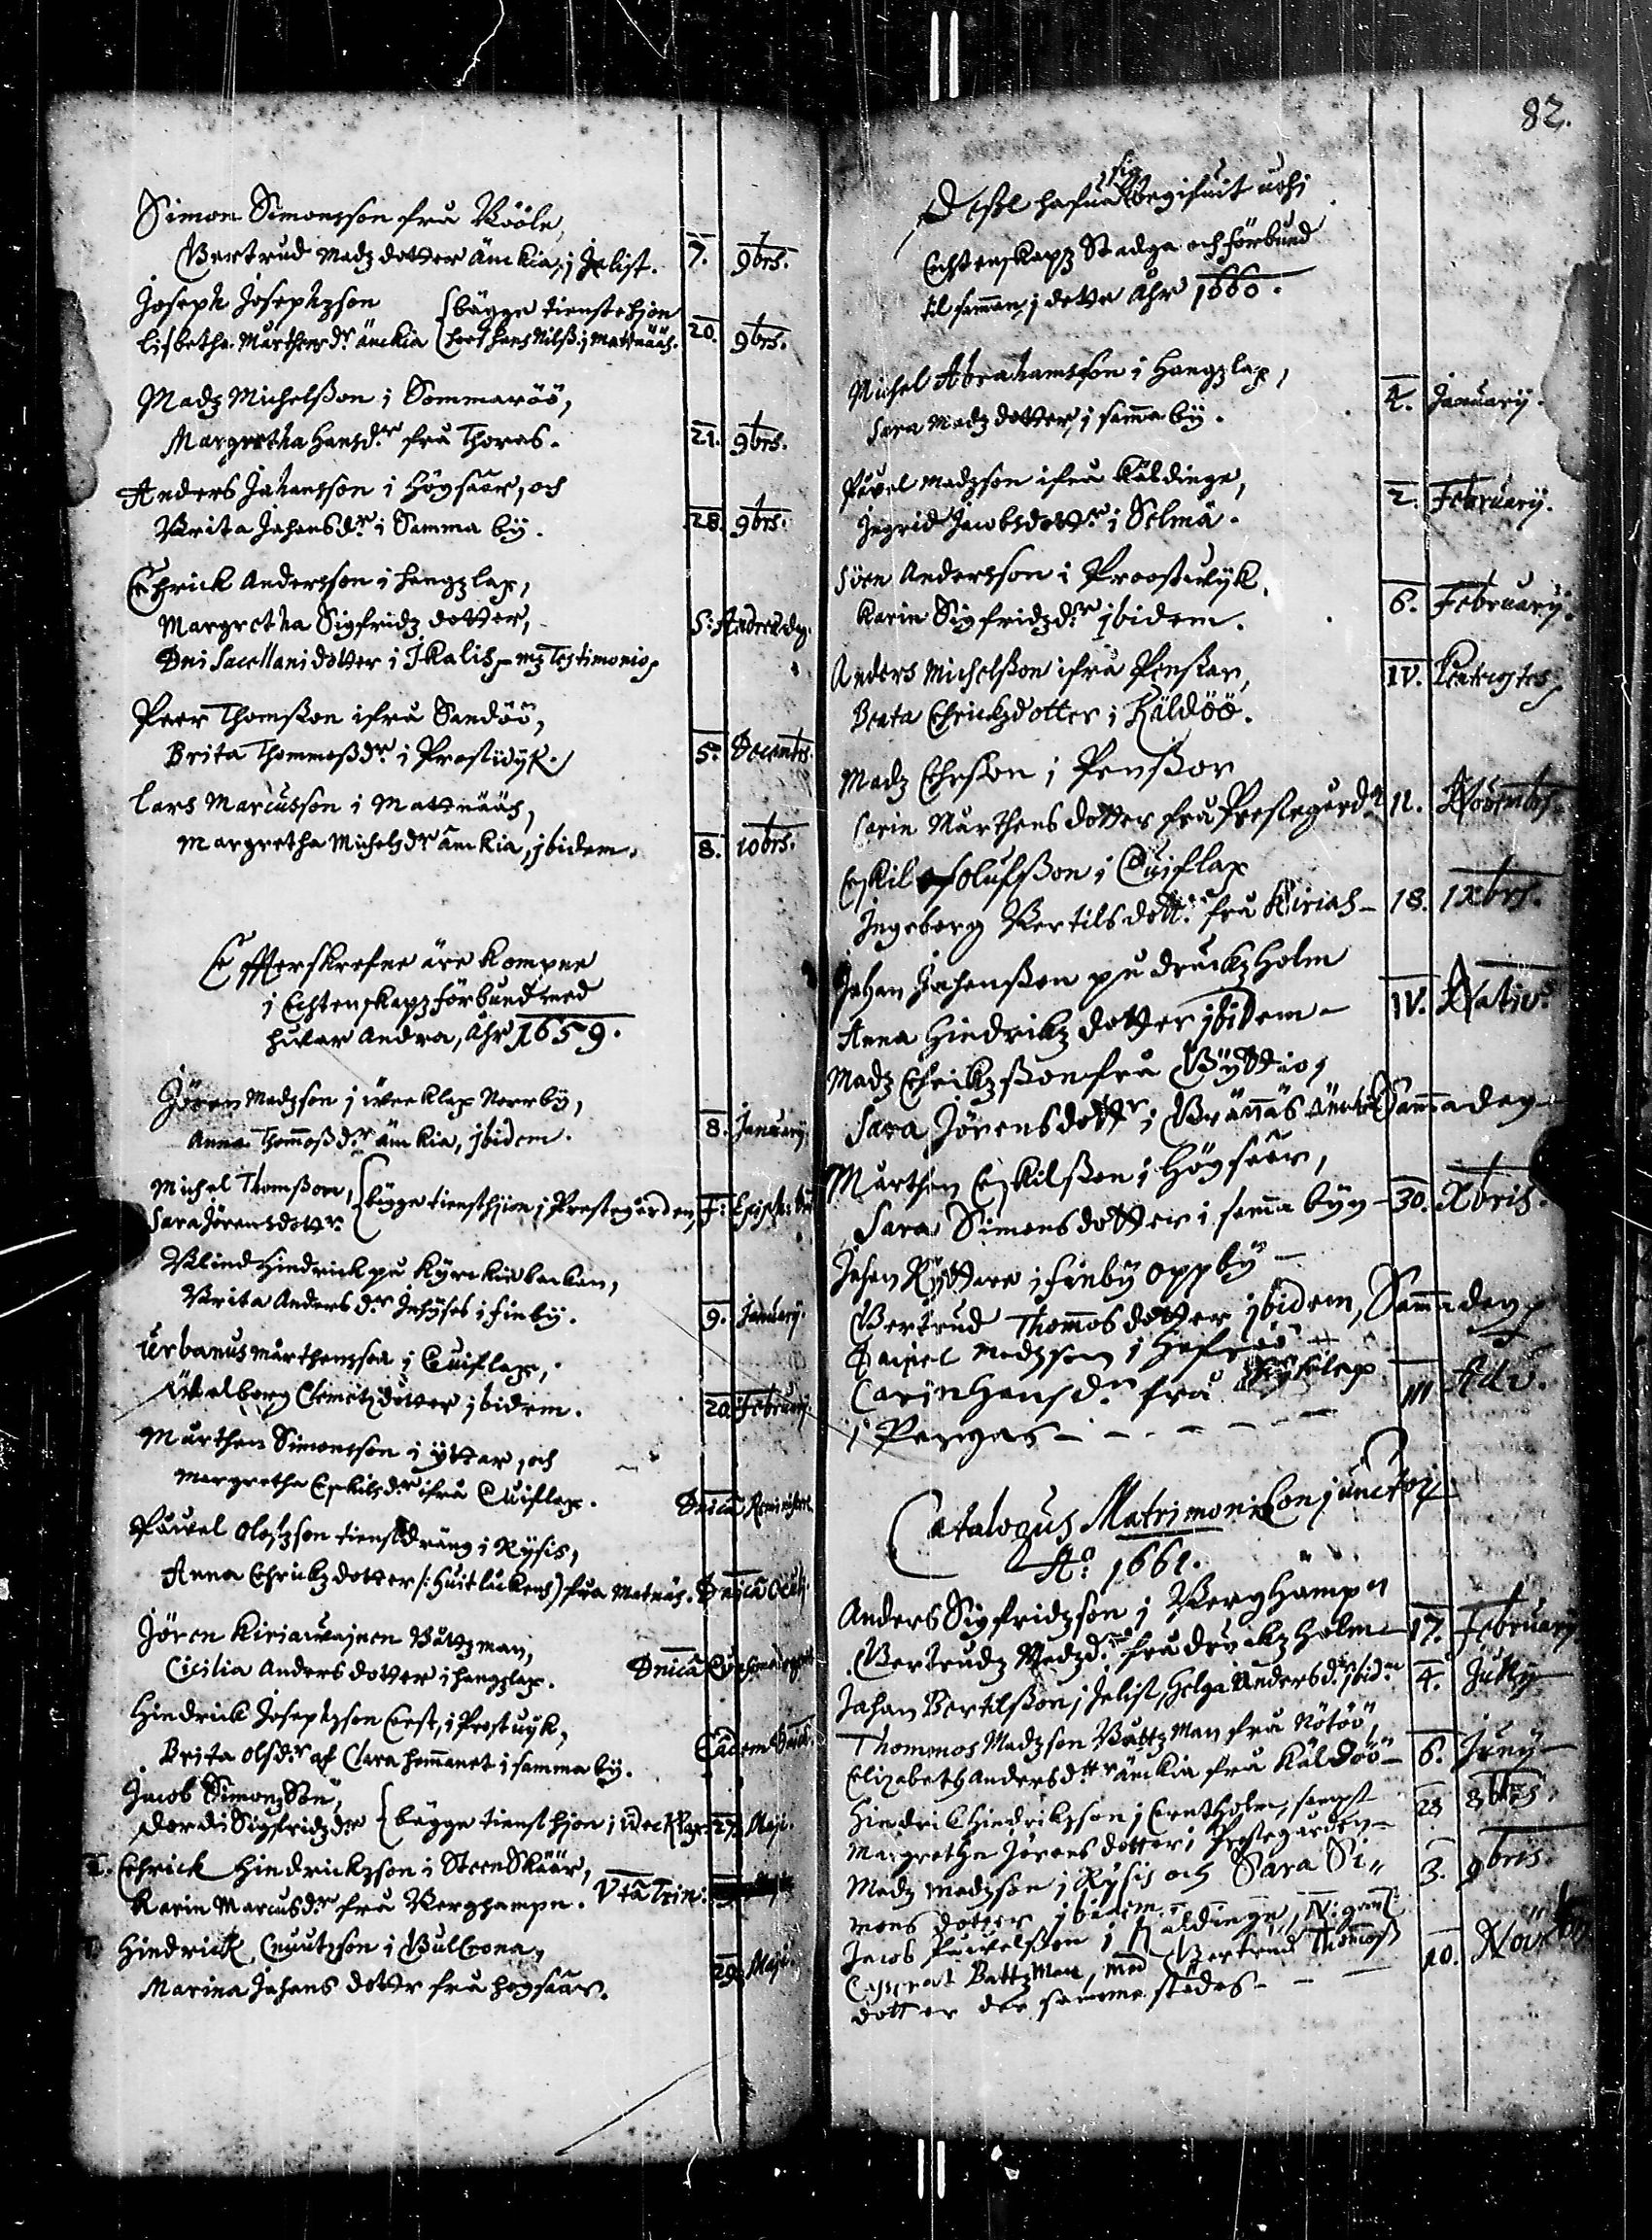 Simon Simonsson frå Rööle
Bertrud Madz dotter änkia, j Jelist. 7. 9brs.
Joseph Josephzson bägge tienstehjon
Lisbetha Mårthensdr änkia hoos hans Nilß. j Mattnääs. 20. 9brs.
Madz Michelßon j Sommaröö,
Margretha Hansdr frå Thoras. 21. 9brs.
Anders Johansson i Högsåår, och
Brita Johansdr i Samma by. 28. 9brs.
Ehrick Andersson i hengzlax,
Margretha Sigfridz dotter, S: Andreæ dag.
Dni Sacellani dotter i Ikalis, mz Testimonio,
Peer Thomßon ifrå Sandöö,
Brita Thommoßdr i Prostvijk. 5. Decembs.
Lars Marcusson i Mattnääs,
Margretha Michelsdr änkia, jbidem. 8. 10brs.
Effterskrefne äre kompne
i Echtenskapz förbund med
hwar Andra, Ahr 1659.
Jören Madzson j weeklax Norrby,
Anna Thomoßdr änkia, jbidem. 8. January
Michel Thomßon,
Sara Jörensdottr. bägge tiensthjon j Prestegården,
Blind Hindrick på Kyrkiebacken,
Brita Andersdr Jnhyses i Finby. 9. January.
Urbanus Mårthensson j Cuiflax,
Walborg Clemetzdotter jbidem. 20. February.
Mårthen Simonsson i ytter, och
Margretha Eskilsdr ifrå Cuiflax. Dnica Reminisc.
Påwel Olofzson tienstdräng i Rysis,
Anna Ehrickz dotter (: Huitluckens) frå Matnäs. Dnica Oculi
Jören Kiriawainen Båttzman,
Cicilia Anders dotter i hangslax. Dnica
Hindrick Josephzson Cest, i Prostuyk,
Brita Olsdr af Clara hemmanet i samma by. Eadem
Jacob Simonzson,
Dordi Sigfridzdr bägge tiensthjon j 27. Maji.
Ehrick Hindrickzson i SteenSkäär,
Karin Marcusdr frå Berghampn. Vtã Trin:
Hindrick Cnuutzson i Bulcrona,
Marina Johans dotter frå hogsåår. 29. Maji.
82.
Desse hafua sig begifuit uthj
Echtenskapz Stadga och förbund
til samman j dette Ahr 1660.
Michel Abrahamsson i Hangzlax,
Sara Madz dotter, j samma by. 2. January.
Påvel Madzson ifrå Käldinge,
Ingrid Jacobsdottr i Selmä. 2. February.
Sven Andersson i Proostwijk,
Karin Sigfridzdr jbidem. 6. February.
Anders Michelßon ifrå Penßar,
Beata Ehrickzdotter j Käldöö. IV. Pentecostes
Madz Ehrsson j Penßor
Carin Mårthens dotter frå Prestegården 11. Novembs.
Eskil Olufsson i Cuiflax
Ingeborg Bertilsdottr. frå Kirias 18. IXbrs.
Johan Johanßon på druckzholm
Anna Hindrikz dotter jbidem IV. Nativ.
Madz Ehrikzsson frå Wyttio,
Sara Jörensdottr j Brännäs änkia Samadag
Mårthen Eskilßon j Högsåår,
Sara Simonsdotter i sama byn 30. Xbris.
Johan Ryttare i Finby oppby
Bertrud Thomosdotter jbidem, Samadag
Daniel Madzson j
Carin Hansdr frå
j Pargas III Adv.
Catalogus Matrimonio Conjunctorum
Ao. 1661.
Anders Sigfridzson j Berghampn
Bertrudz Madzdr. frå drückz holm 17. February
Johan Bertilßon j Jelist, Helga Andersdr. jbidm 4. Jully
Thommos Madzson Båttzman frå Nötöö,
Elizabeth Andersdtr änkia frå Käldöö 6. Juny
Hindrik Hindrikzson j Crntholm, sampt
Margretha Jörens dotter i Prestegården 28 8bris.
Madz Madzson j Rysis och Sara Si-
mons dotter jbidem. 3. 9bris.
Jacob Påwelsson i Kaldinge,
Casserat Båttzman, med Bertrud Thomoß
dotter der sammastädes 10. Novbr.